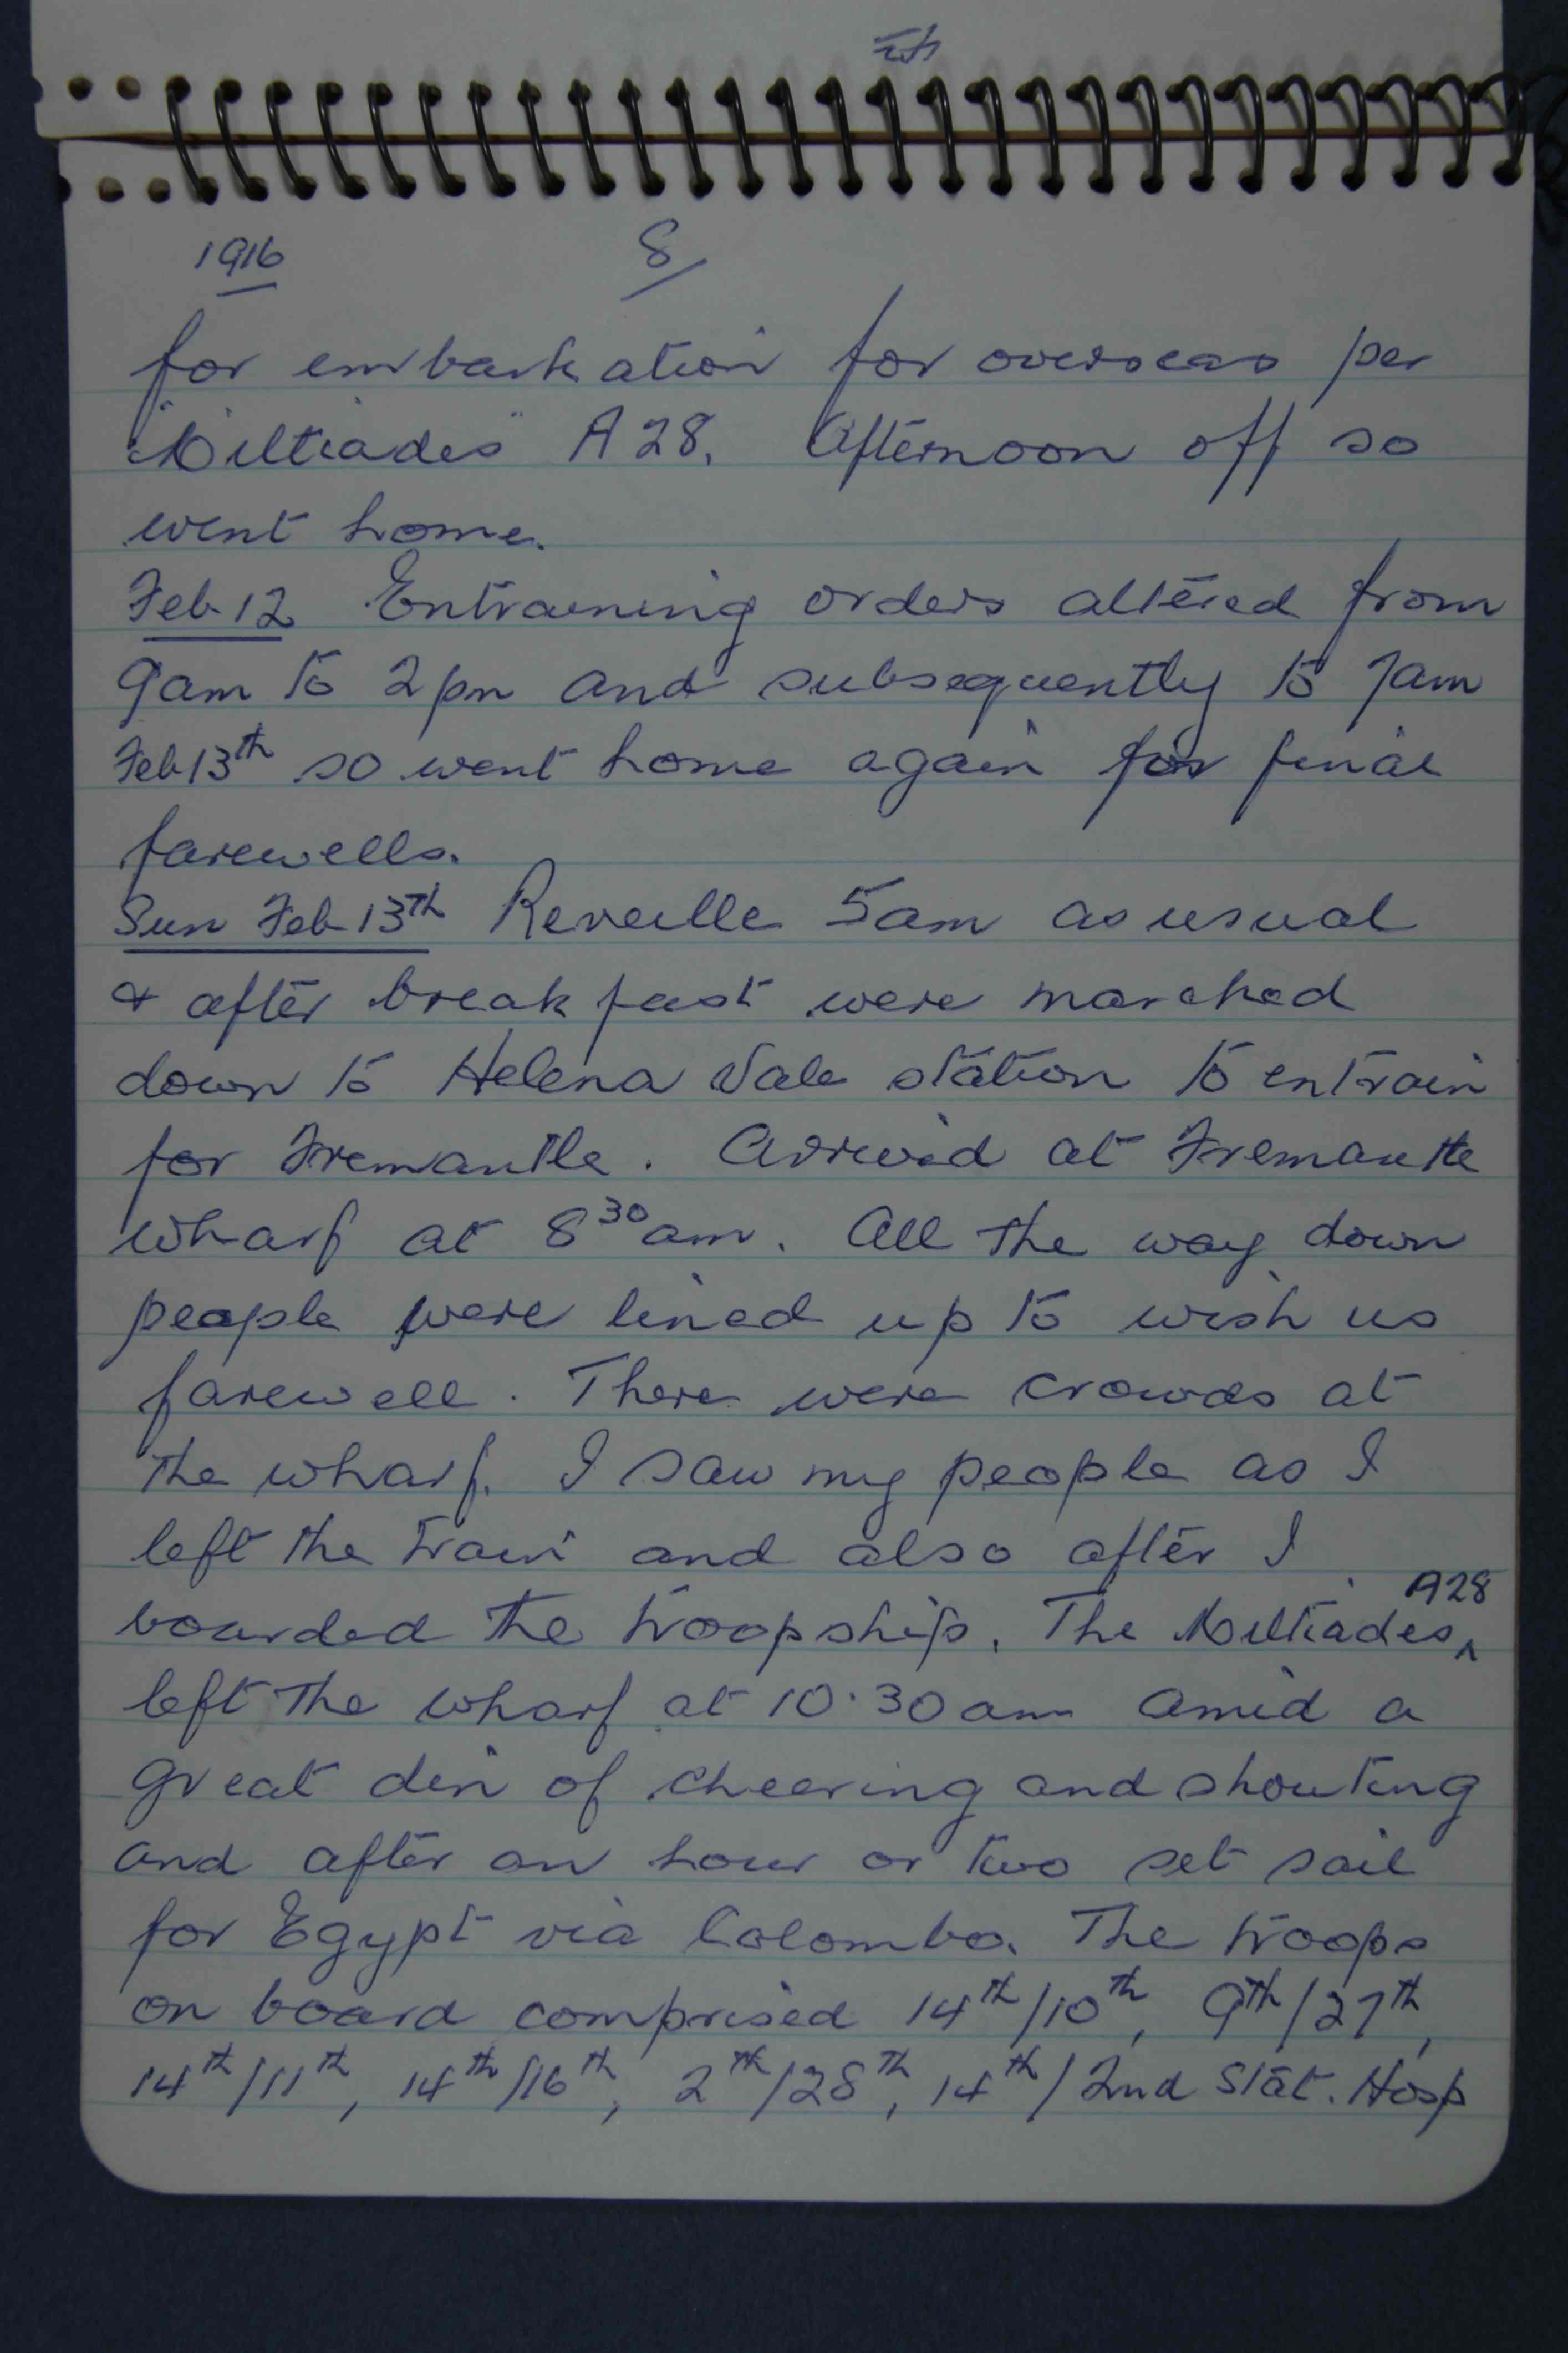 1916 8/
for embarkation for overseas per
"Miltiades" A28. Afternoon off so
went home.
Feb 12 Entraining orders altered from
9am to 2pm and subsequently to 7am
Feb 13th so went home again for final
farewells.
Sun Feb 13th Reveille 5am as usual
& after breakfast were marched
down to Helena Vale station to entrain
for Fremantle. Arrived at Fremantle
wharf at 8 30 am. All the way down
people were lined up to wish us
farewell. There were crowds at
the wharf. I saw my people as I
left the train and also after I
boarded the troopship. The Miltiades A28
left the wharf at 10.30 am amid a
great din of cheering and shouting
and after an hour or two set sail
for Egypt via Colombo. The troops
on board comprised 14th/10th, 9th/27th,
14th/11th, 14th/16th, 2th/28th, 14th/2nd Stat. Hosp